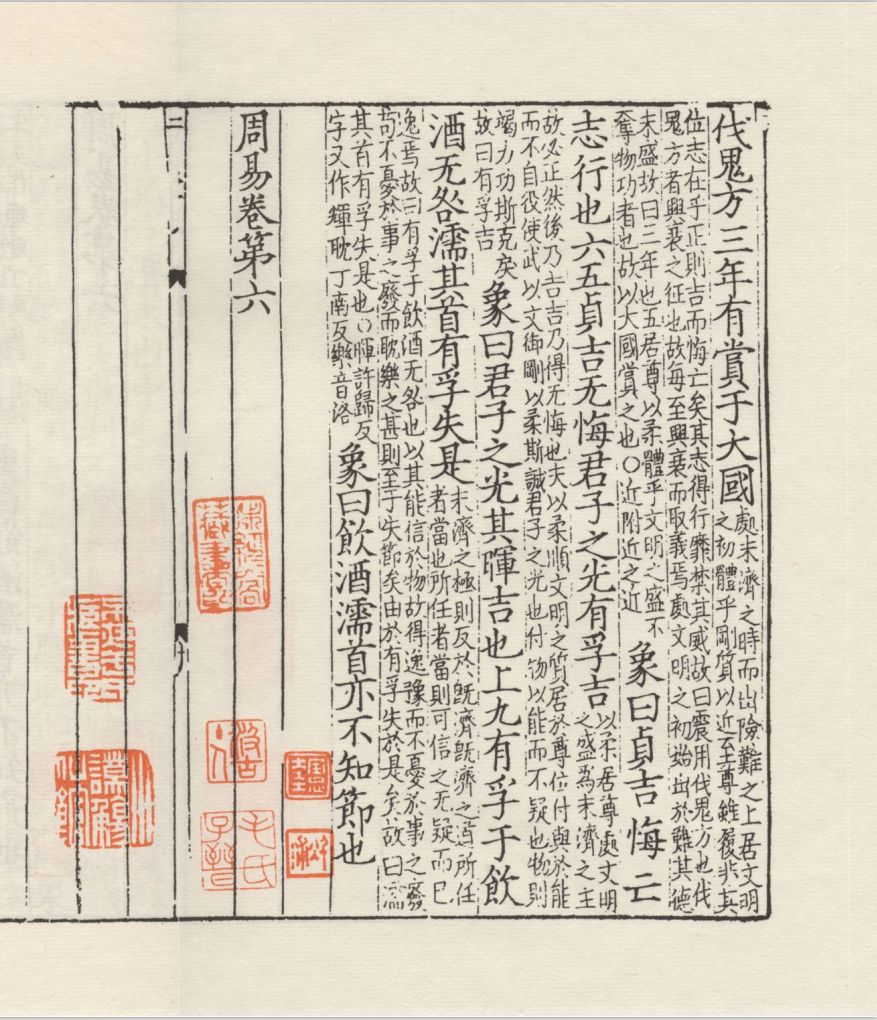 伐鬼方三年有賞于大國
處未濟之時而出險難之上居文明
之初體乎剛質以近至尊雖履非其
位志在乎正則吉而悔亡矣其志得行靡禁其威故曰震用伐鬼方也伐
鬼方者興衰之征也故每至興衰而取義焉處文明之初始出於難其德
未盛故曰三年也五居尊以柔體乎文明之盛不
奪物功者也故以大國賞之也○近附近之近
象曰貞吉悔亡
志行也六五貞吉无悔君子之光有孚吉
以柔居尊處文明
之盛爲未濟之主
故必正然後乃吉吉乃得无悔也夫以柔順文明之質居於尊位付與於能
而不自役使武以文御剛以柔斯誠君子之光也付物以能而不疑也物則
竭力功斯克矣
故曰有孚吉
象曰君子之光其暉吉也上九有孚于飲
酒无咎濡其首有孚失是
未濟之極則反於旣濟旣濟之道所任
者當也所任者當則可信之无疑而已
逸焉故曰有孚于飲酒无咎也以其能信於物故得逸豫而不憂於事之廢
苟不憂於事之廢而耽樂之甚則至于失節矣由於有孚失於是矣故曰濡
其首有孚失是也○暉許歸反
字又作輝耽丁南反樂音洛
象曰飲酒濡首亦不知節也
周易卷第六
毛氏
子晉